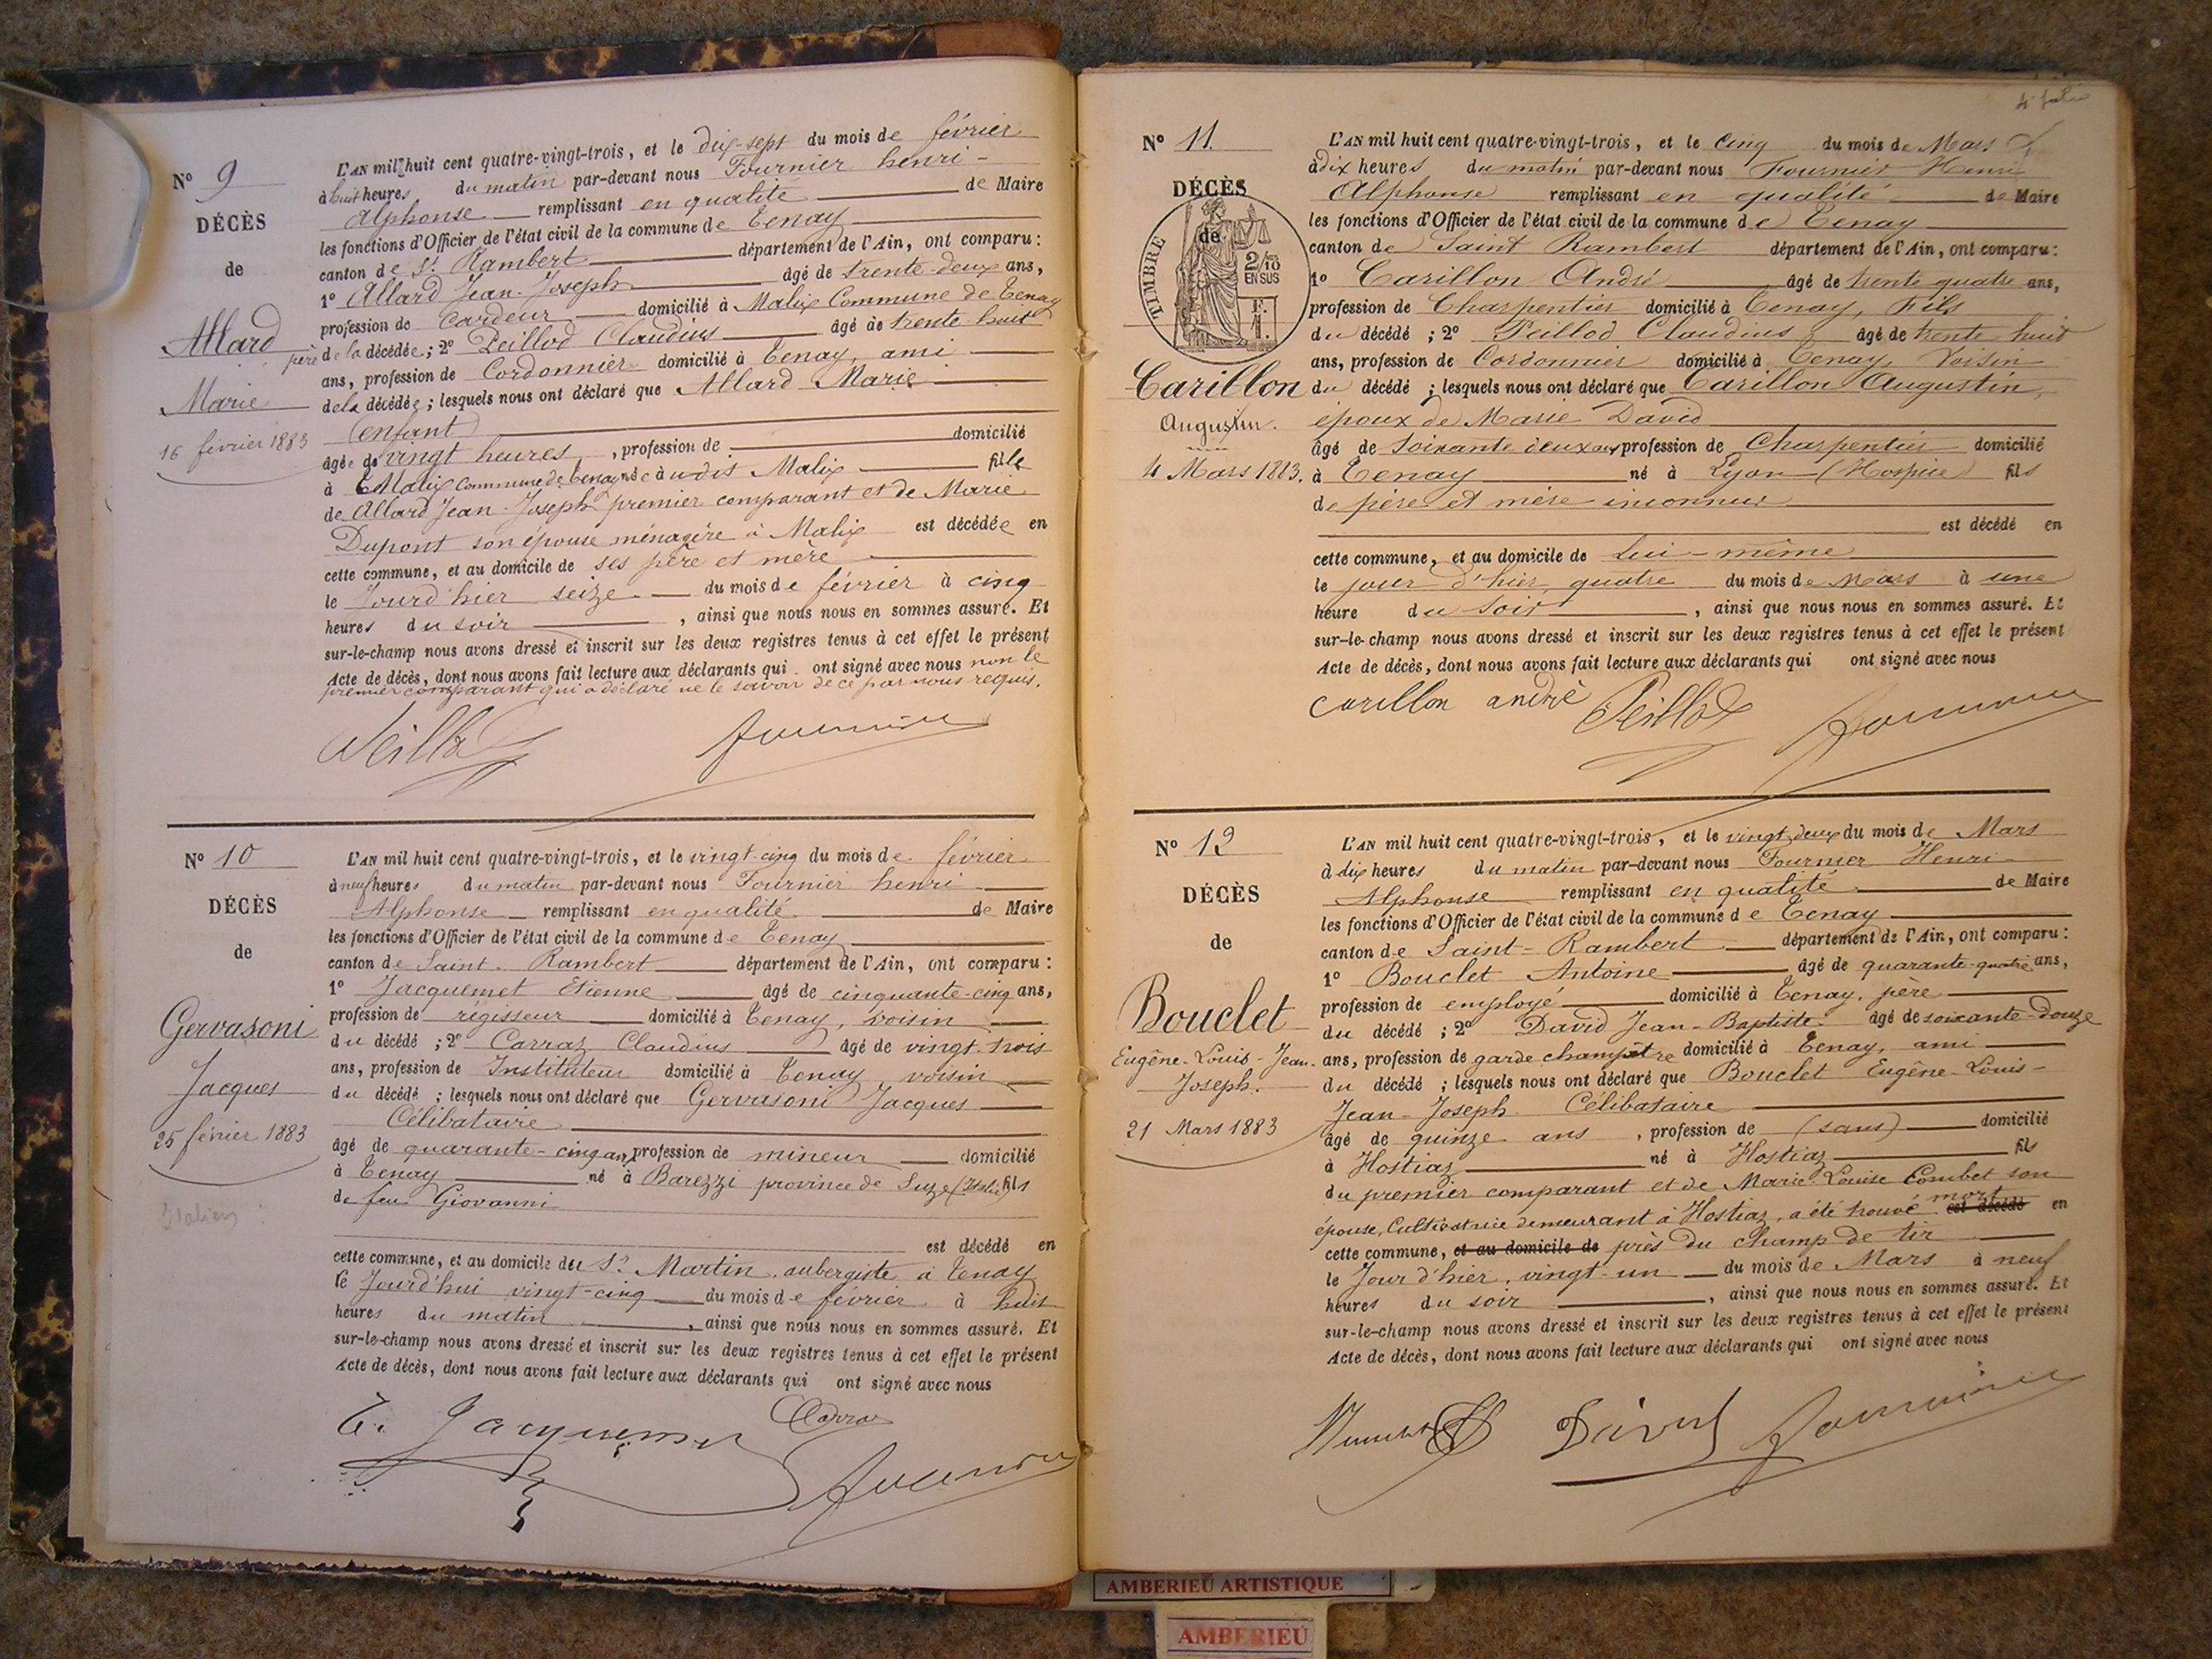 N° 9
DÉCÈS
de
Allard
Marie
16 février 1883
L'AN mil huit cent quatre-vingt-trois, et le dix-sept du mois de février
à huit heures du matin par-devant nous Fournier henri-
Alphonse remplissant en qualité de Maire
les fonctions d'Officier de l'état civil de la commune de Tenay
canton de St Rambert département de l'Ain, ont comparu :
1° Allard Jean-Joseph âgé de trente-deux ans,
profession de Cardeur domicilié à Malix Commune de Tenay
père de la décédée ; 2° Peillod Claudius âgé de trente-huit
ans, profession de Cordonnier domicilié à Tenay, ami
de la décédée ; lesquels nous ont déclaré que Allard Marie
(enfant)
âgée de vingt heures, profession de domicilié
à Malix commune de Tenay née audit Malix fille
de Allard Jean-Joseph premier comparant et de Marie
Dupont son épouse ménagère à Malix est décédée en
cette commune, et au domicile de ses père et mère
le Jourd'hier seize du mois de février à cinq
heures du soir, ainsi que nous nous en sommes assuré. Et
sur-le-champ nous avons dressé et inscrit sur les deux registres tenus à cet effet le présent
Acte de décès, dont nous avons fait lecture aux déclarants qui ont signé avec nous non le
premier comparant qui a déclaré ne le savoir de ce par nous requis.
N° 10
DÉCÈS
de
Gervasoni
Jacques
25 février 1883
Italien
L'AN mil huit cent quatre-vingt-trois, et le vingt-cinq du mois de février
à neuf heures du matin par-devant nous Fournier henri
Alphonse remplissant en qualité de Maire
les fonctions d'Officier de l'état civil de la commune de Tenay
canton de Saint-Rambert département de l'Ain, ont comparu :
1° Jacquemet Etienne âgé de cinquante-cinq ans,
profession de régisseur domicilié à Tenay, voisin
du décédé ; 2° Carraz Claudius âgé de vingt-trois
ans, profession de Instituteur domicilié à Tenay voisin
du décédé ; lesquels nous ont déclaré que Gervasoni Jacques
Célibataire
âgé de quarante-cinq ans, profession de mineur domicilié
à Tenay né à Barezzi province de Suze (Italie) fils
de feu Giovanni
est décédé en
cette commune, et au domicile du Sr Martin, aubergiste à Tenay
le Jourd'hui vingt-cinq du mois de février à huit
heures du matin, ainsi que nous nous en sommes assuré. Et
sur-le-champ nous avons dressé et inscrit sur les deux registres tenus à cet effet le présent
Acte de décès, dont nous avons fait lecture aux déclarants qui ont signé avec nous
E. Jacquemet Carraz
N° 11
DÉCÈS
de
TIMBRE
2/10
EN SUS
F.
1.
Carillon
Augustin.
4 Mars 1883.
L'AN mil huit cent quatre-vingt-trois, et le Cinq du mois de Mars
à dix heures du matin par-devant nous Fournier Henri
Alphonse remplissant en qualité de Maire
les fonctions d'Officier de l'état civil de la commune de Tenay
canton de Saint Rambert département de l'Ain, ont comparu :
1° Carillon André âgé de trente quatre ans,
profession de Charpentier domicilié à Tenay, Fils
du décédé ; 2° Peillod Claudius âgé de trente huit
ans, profession de Cordonnier domicilié à Tenay, Voisin
du décédé ; lesquels nous ont déclaré que Carillon Augustin,
époux de Marie David
âgé de soixante deux ans profession de Charpentier domicilié
à Tenay né à Lyon (Hospice) fils
de père et mère inconnus
est décédé en
cette commune, et au domicile de Lui-même
le jour d'hier, quatre du mois de Mars à une
heure du soir, ainsi que nous nous en sommes assuré. Et
sur-le-champ nous avons dressé et inscrit sur les deux registres tenus à cet effet le présent
Acte de décès, dont nous avons fait lecture aux déclarants qui ont signé avec nous
carillon andré Peillod
N° 12
DÉCÈS
de
Bouclet
Eugène-Louis-Jean-
Joseph.
21 Mars 1883
L'AN mil huit cent quatre-vingt-trois, et le vingt deux du mois de Mars
à dix heures du matin par-devant nous Fournier Henri-
Alphonse remplissant en qualité de Maire
les fonctions d'Officier de l'état civil de la commune de Tenay
canton de Saint-Rambert département de l'Ain, ont comparu :
1° Bouclet Antoine âgé de quarante-quatre ans,
profession de employé domicilié à Tenay, père
du décédé ; 2° David Jean-Baptiste âgé de soixante-douze
ans, profession de garde champêtre domicilié à Tenay, ami
du décédé ; lesquels nous ont déclaré que Bouclet Eugène-Louis-
Jean-Joseph Célibataire
âgé de quinze ans, profession de (sans) domicilié
à Hostiaz né à Hostiaz fils
du premier comparant et de Marie-Louise Combet son
épouse, Cultivatrice demeurant à Hostiaz, a été trouvé mort est décédé en
cette commune, et au domicile de près du champ de tir
le Jour d'hier, vingt-un du mois de Mars à neuf
heures du soir, ainsi que nous nous en sommes assuré. Et
sur-le-champ nous avons dressé et inscrit sur les deux registres tenus à cet effet le présent
Acte de décès, dont nous avons fait lecture aux déclarants qui ont signé avec nous
David
AMBERIEU ARTISTIQUE
AMBERIEU